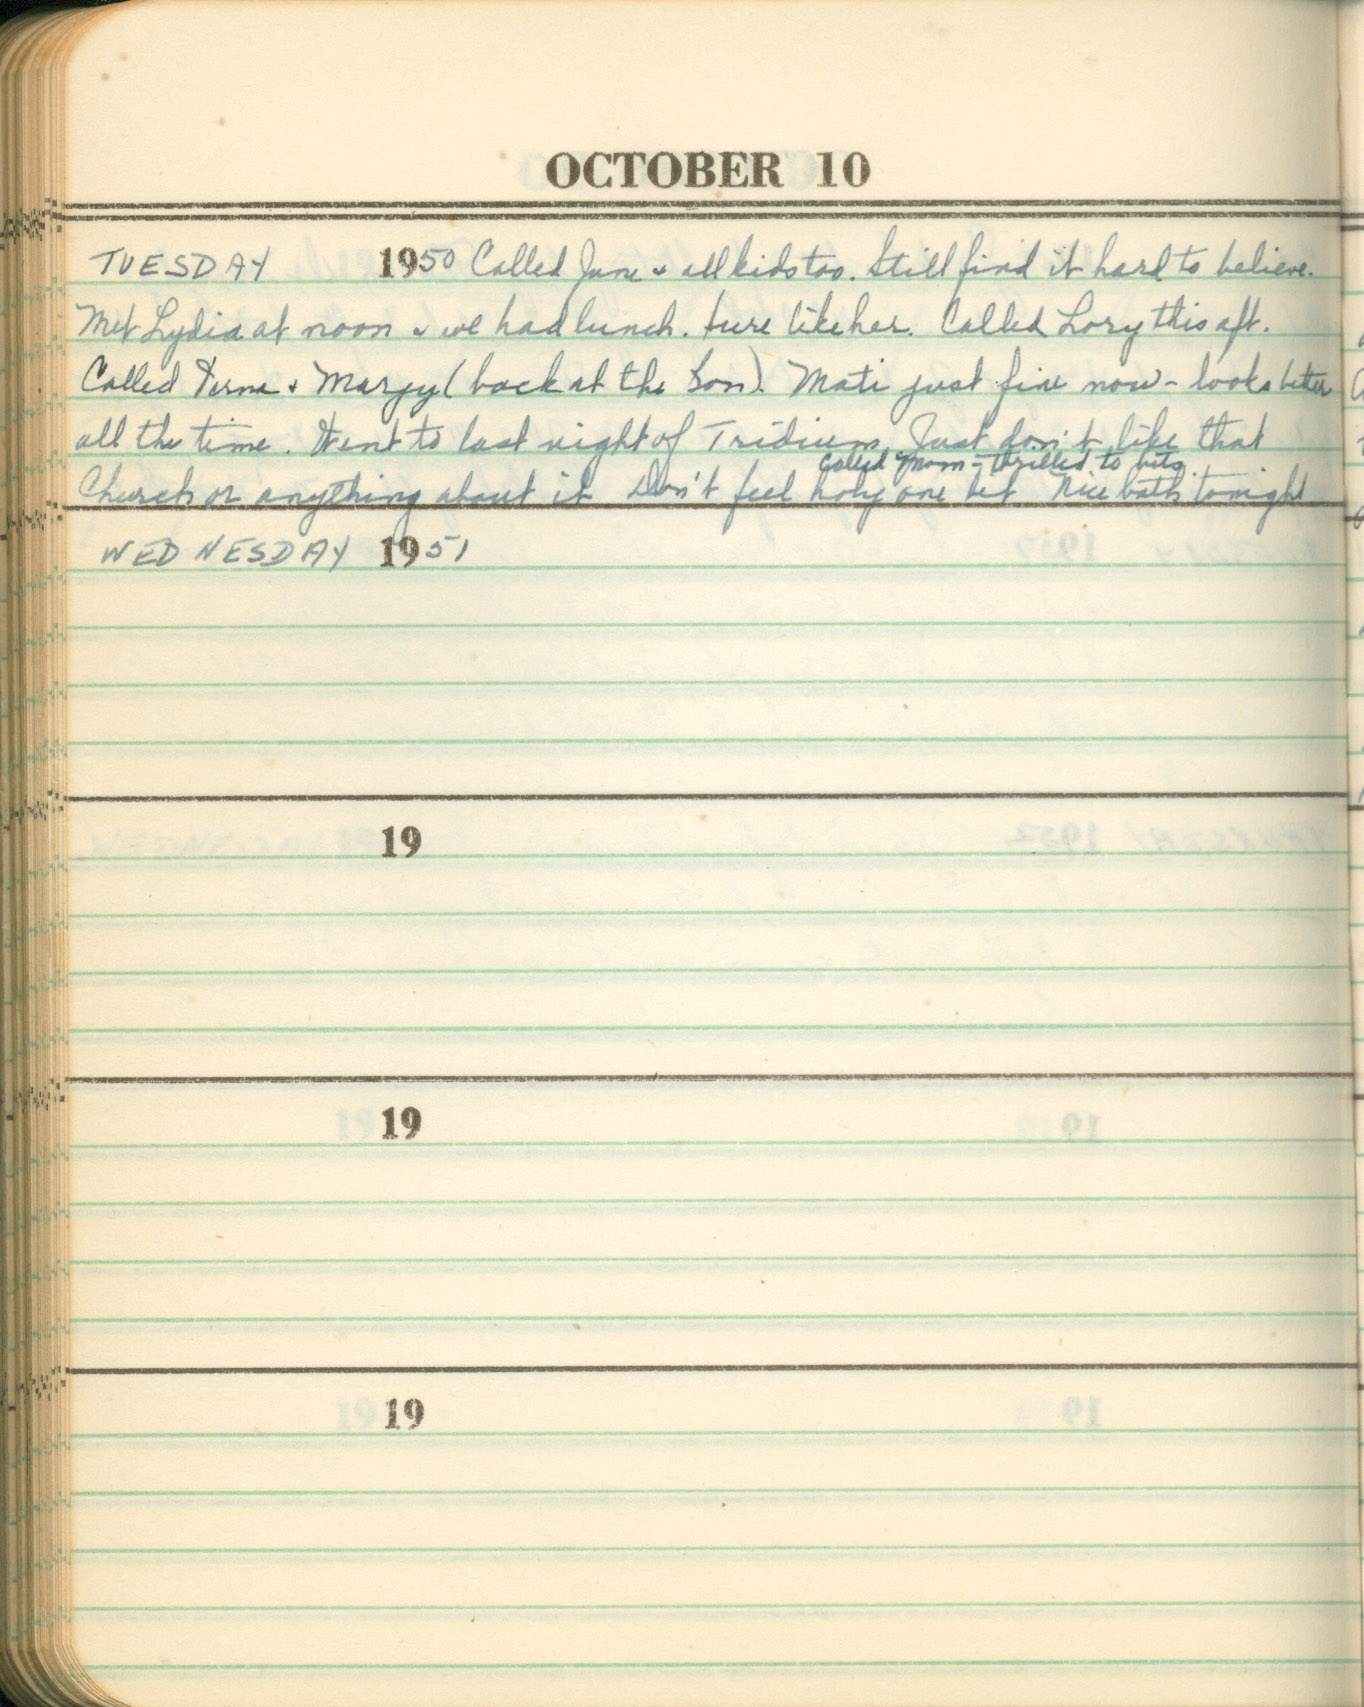 OCTOBER 10
TUESDAY 1950 Called June & all kids too. Still find it hard to believe.
Met Lydia at noon & we had lunch. Sure like her. Called Lory this aft.
Called Verna & Margy (back at the Bon). Mati just fine now - looks better
all the time. Went to last night of Triduum. Just don't like that
called Mom - thrilled to bits.
Church or anything about it Don't feel holy one bit Nice bath tonight
WEDNESDAY 1951
19
19
19